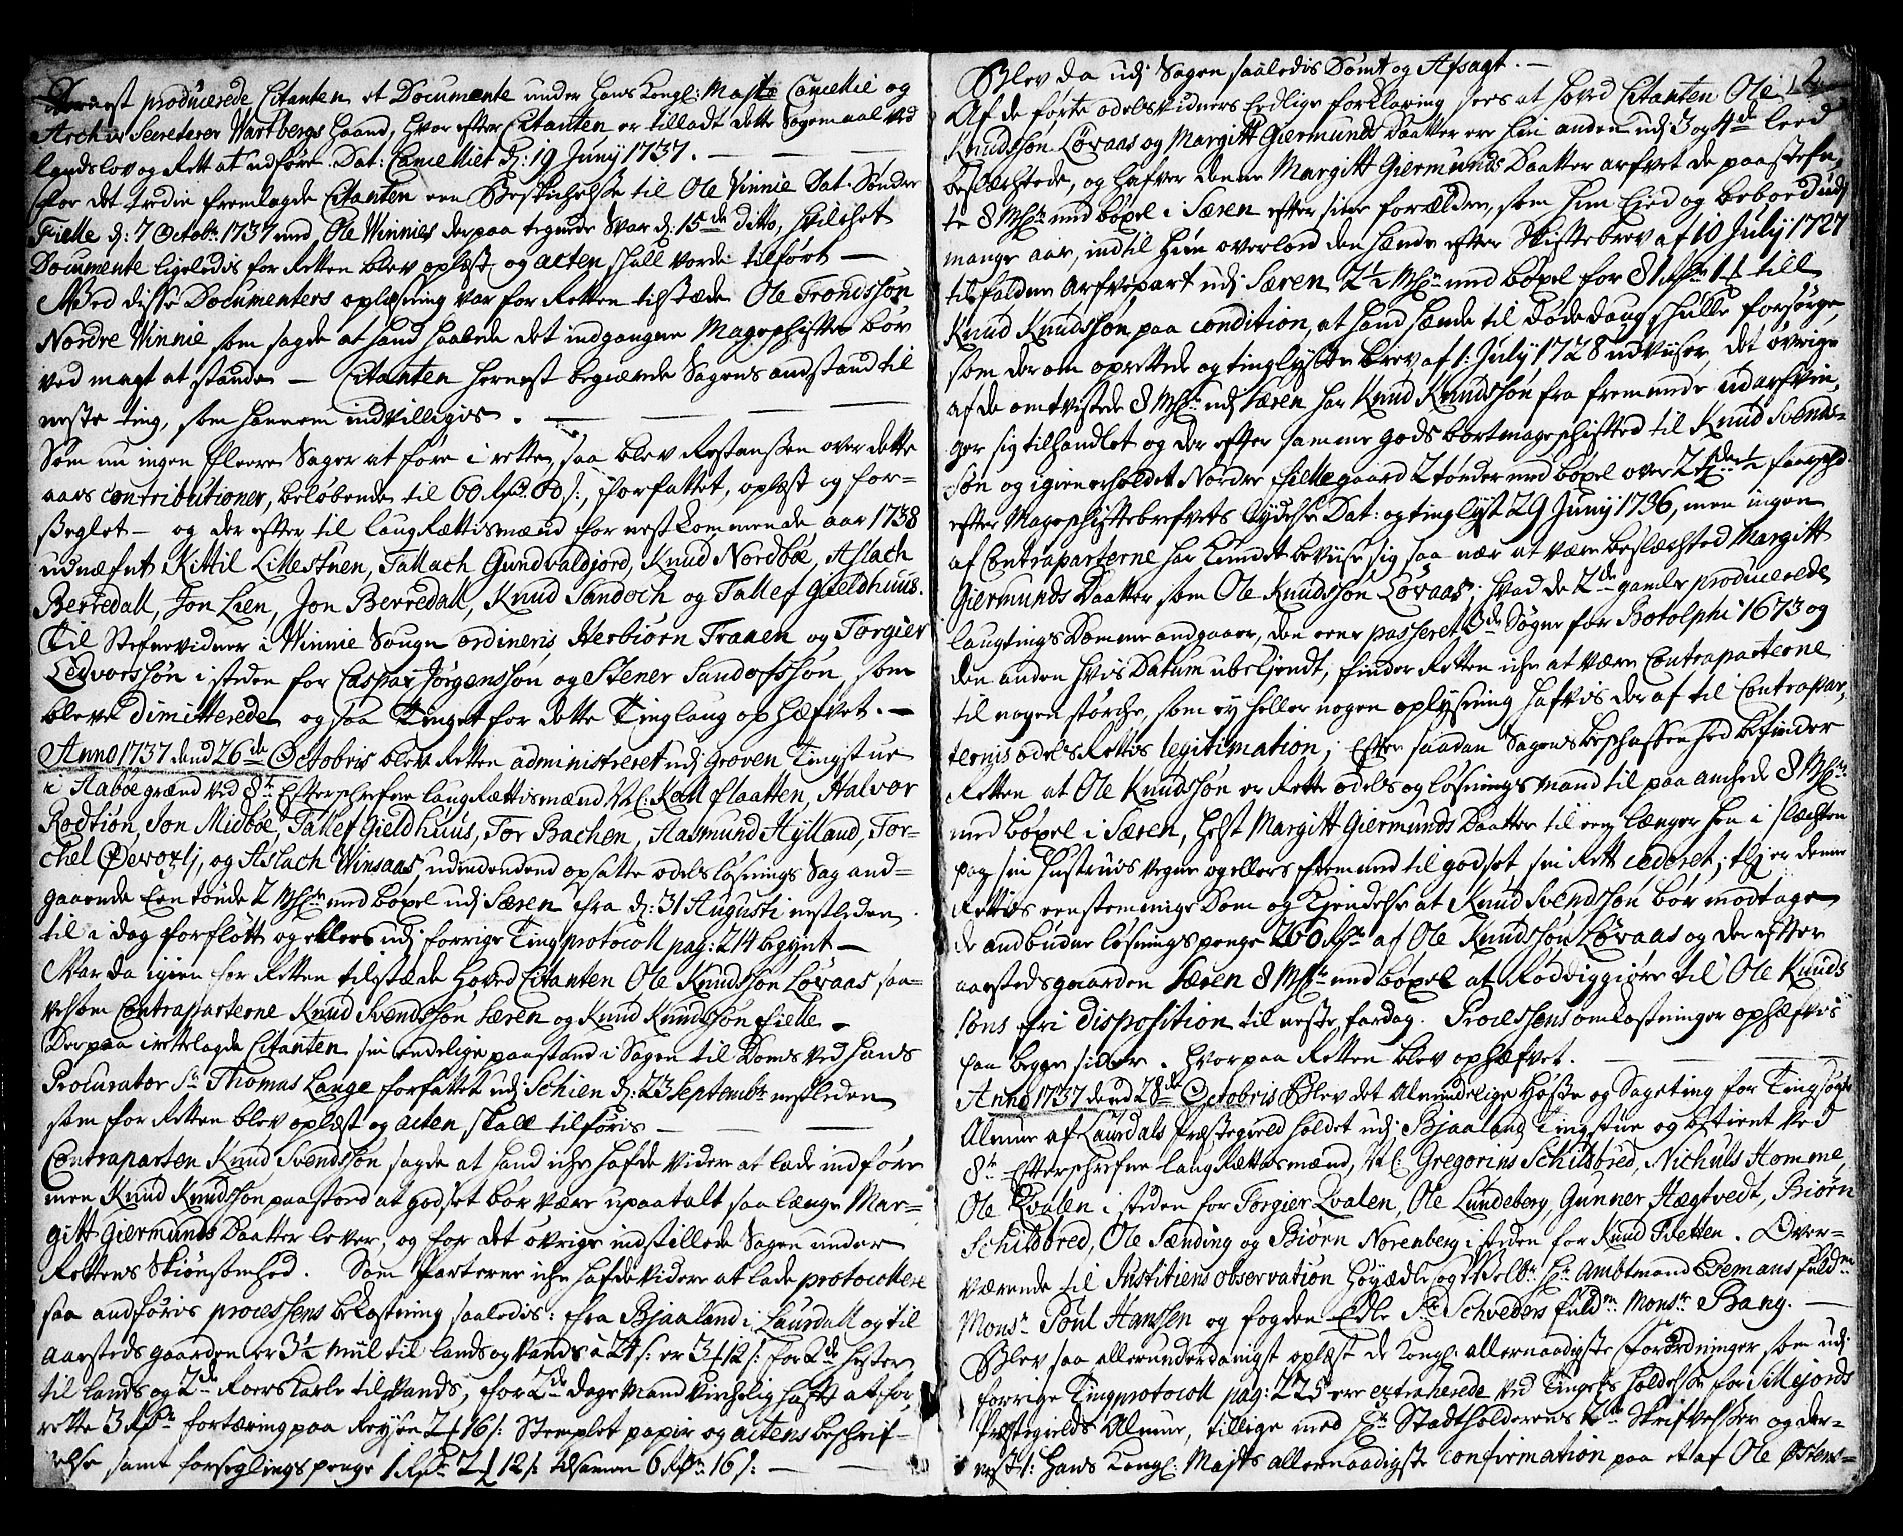 Dernest producerede Citanten et Documente under Hans Kongl: Majts Cancellie og
Archiv Secreterer Wartbergs haand, hvor efter Citanten er tilladt dette Sagemaal ved
landslov og Rett at udføre. Dat: Cancelliet d: 19 Juny 1737. —
For det tredie fremlagde Citanten een Beskichelse til Ole Vinnie Dat. Søndre
Fielle d: 7 Octobr: 1737 med Ole Winnies derpaa tegnede Svar d: 15de ditto, hvilchet
Documente ligeledis for Retten blev oplæst og acten skall vorde tilført —
Ved disse Documenters oplæsning var for Retten tilstæde Ole Trondssøn
Nordre Winnie som sagde at hand haabede det indgangne Mageschifte bør
ved magt at stande — Citanten hernest begiærede Sagens anstand til
neste ting, som hannem indvilligis. —
Som nu ingen fleere Sager at føre i rette, saa blev Restantzen over dette
aars contributioner, beløbende til 60 Rdr. 60 s:, forfattet, oplæst og for-
seglet — og der efter til laugRettismænd for nestkommende aar 1738
udnæfnt Kittil Lillestuen, Tallach Gundvaldjord, Knud Nordbøe, Aslach
Berredall, Jon Lien, Jon Berredall, Knud Sandoch og Tallef Gieldhuus.
Til Stefnevidner i Winnie Sougn ordineris Herbiørn Traaen og Torgier
Ledvorssøn i steden for Caspar Jørgenssøn og Stener Sandofssøn, som
bleve dimitterede og saa Tinget for dette Tinglaug ophæfvet. —
Anno 1737 dend 26de Octobris blev Retten administreret udj Groven Tingstue
i Aaboegrænd ved 8te Efterschrefne laugRettismænd Nl: Kall Flaatten, Halvor
Rodtion, Jon Midbøe, Tallef Gieldhuus, Tor Bachen, Aasmund Hylland, Tor-
chel Øevorlj, og Aslach Winsaas, udj dend opsatte odels løsnings Sag and-
gaaende Een tønde 2 Mhln med bøxel udj Særen fra d: 31 Augusti nestleden
til i dag forfløtt og ellers udj forrige Tingprotocoll pag: 214 begynt —
Var da igien for Retten tilstæde Hoved Citanten Ole Knudssøn Løvaas saa-
velsom Contraparterne Knud Svendssøn Særen og Knud Knudssøn Fielle —
Derpaa irettelagde Citanten sin endelige paastand i Sagen til Doms ved hans
Procurator Sr Thomas Lange forfattet udj Schien d: 23 Septembr: nestleden
som for Retten blev oplæst og acten skall tilføris —
Contraparten Knud Svendssøn sagde at hand iche hafde videre at lade indføre
men Knud Knudssøn paastod at godset bør være upaatalt saa længe Mar-
gitt Giermunds Daatter lever, og for det øvrige indstillede Sagen under
Rettens Skiønsomhed. Som Parterne iche hafde videre at lade protocollere
saa andføris processens bekostning saaledis: fra Bjaaland i Laurdall og til
aarstedsgaarden er 3½ miil til lands og vands à 24 s: er 3 f 12 s: for 2de hester
til lands og 2de Roerskarle til Vands, for 2de dage mand virchelig haft at for-
rette 3 Rdr. fortæring paa Reysen 2 f 16 s: Stemplet papir og actens beschrif-
velse samt forseglings penge 1 Rdr. 2 f 12 s: tilsamen 6 Rdr. 16 s: —
2
Blev da udj Sagen saaledis Dømt og Afsagt. —
Af de førte odelsvidners Eedlige forklaring sees at hoved Citanten Ole
Knudssøn Løvaas og Margitt Giermunds Daatter ere hin anden udj 3 og 4de leed
beslæchtede, og hafver denne Margitt Giermunds Daatter arfvet de paastefn-
te 8 Mhln med bøxel i Særen efter sine forældre, som hun Eied og beboed udj
mange aar, indtil hun overlod den hænde efter Skiftebrev af 10 July 1727
tilfaldne Arfvepart udj Særen 2½ Mhln med bøxel for 81 Rdr 1 f till
Knud Knudssøn paa condition, at hand hænde til dødedaug skulle forsørge,
som der om oprettede og tinglyste brev af 1: July 1728 udviiser, det øvrige
af de omtvistede 8 Mhln udj Særen har Knud Knudssøn fra fremmede udarfvin-
ger sig tilhandlet og der efter samme gods bortmageschifted til Knud Svends-
søn og igien erholdet Nordre Fielle gaard 2 tønder med bøxel over 2 tdr ½ faareschd.
efter Mageschiftebrefvets lydelse Dat: og tinglyst 29 Juny 1736, men ingen
af Contraparterne har kundet beviise sig saa nær at være beslæchtet Margitt
Giermunds Daatter som Ole Knudssøn Løvaas. Hvad de 2de gamle producerede
laugtings Domme andgaaer, den eene passeret 3de Søgne for Botolphi 1673 og
den anden hvis Datum ubekjendt, finder Retten iche at være Contraparterne
til nogen størche, som ey heller nogen oplysning hafvis der af til Contrapar-
ternis odels Rettis legitimation; Efter saadan Sagens beschaffenhed befinder
Retten at Ole Knudssøn er Rette odels og løsningsmand til paaanchede 8 Mhln
med bøxel i Særen, helst Margitt Giermunds Daatter til een længer hen i Slæchten
paa sin Hustrues vegne og ellers fremmed til godset sin Rett cederet; thj er denne
Rettes eenstemmige Dom og Kjendelse at Knud Svendssøn bør modtage
de andbudne løsningspenge 260 Rdr. af Ole Knudssøn Løvaas og der efter
aarstedsgaarden Særen 8 Mhln med bøxel at Røddiggiøre til Ole Knuds
søns fri disposition til neste fardag. Processens omkostninger ophæfvis
paa begge sider. Hvorpaa Retten blev ophæfvet. —
Anno 1737 dend 28de Octobris Blev det Almindelige Høste og Sageting for Tingsøgende
Almue af Laurdals Præstegield holdet udj Bjaaland Tingstue og betient ved
8te Efterschrefne laugRettismænd, Nl: Gregorius Schilbred, Nichuls Homme,
Ole Qvalen i steden for Torgier Qvalen, Ole Lundeberg, Gunner Hægtvedt, Biørn
Schilbred, Ole Sænding og Biørn Norenberg i steden for Knud Tvetten. Over-
værende til Justitiens observation Høyædle og Velbr. Hr. Ambtmand Clemans fuldm.
Monsr Poul Hanssen og fogden Edle Sr Schweders fuldm. Monsr Bang. —
Blev saa allerunderdanigst oplæst de Kongl: allernaadigste forordninger, som udj
forrige Tingprotocoll pag: 225 ere extraherede ved Tingets holdelse for Sillejords
Præstegields Almue, tillige med Hr. Stadtholderens 2de Skrifvelser og der-
nest 1: Hans Kongl: Majts allernaadigste confirmation paa et af Ole Østens-